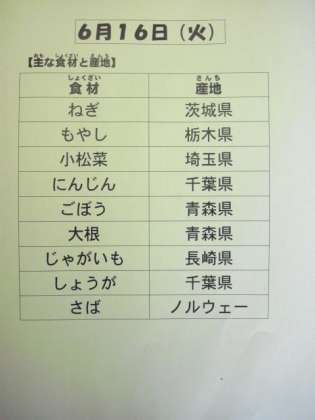 6月16日（火）
【主な食材と産地】
食材 産地
ねぎ 茨城県
もやし 栃木県
小松菜 埼玉県
にんじん 千葉県
ごぼう 青森県
大根 青森県
じゃがいも 長崎県
しょうが 千葉県
さば ノルウェー